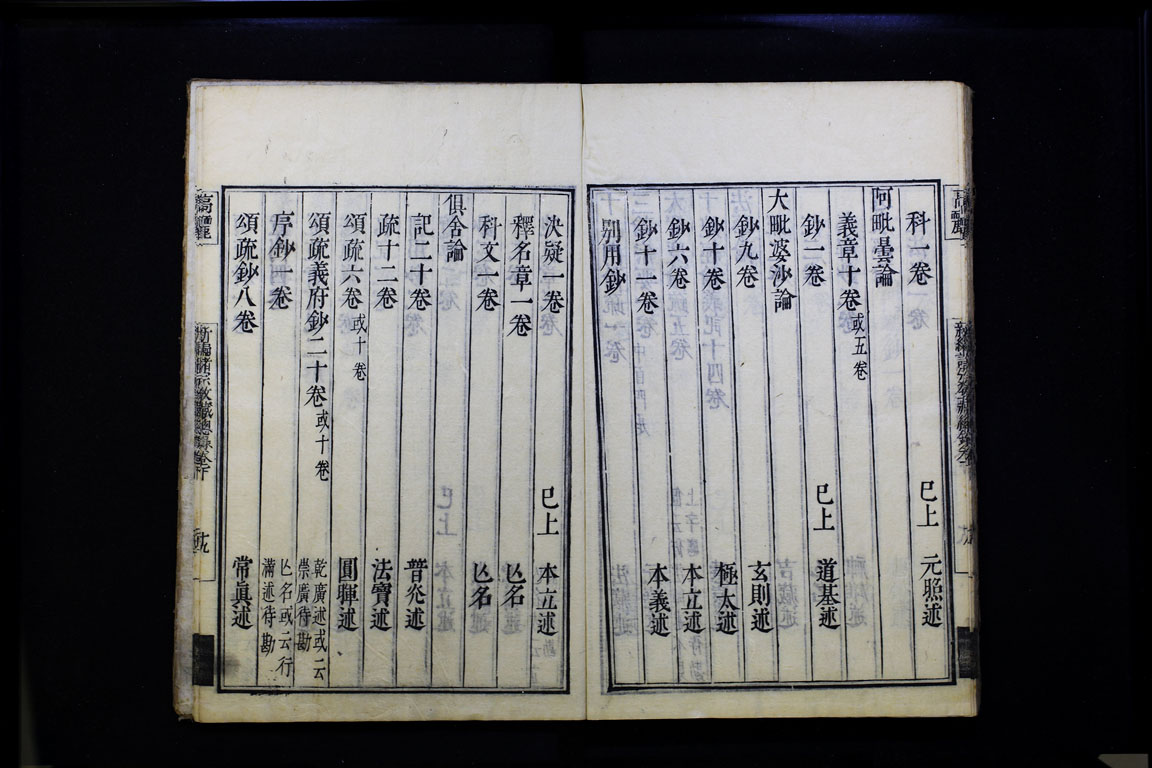 科一卷 已上 元照述
阿毗曇論
義章十卷或五卷
鈔二卷 已上 道基述
大毗婆沙論
鈔九卷 玄則述
鈔十卷 極太述
鈔六卷 本立述
鈔十一卷 本義述
別用鈔
決疑一卷 已上 本立述
釋名章一卷 亾名
科文一卷 亾名
俱舍論
記二十卷 普光述
疏十二卷 法寶述
頌疏六卷或十卷 圓暉述
頌疏義府鈔二十卷或十卷 乾廣述或云崇廣待勘
序鈔一卷 亾名或云行滿述待勘
頌疏鈔八卷 常眞述
新編諸宗教藏總錄卷